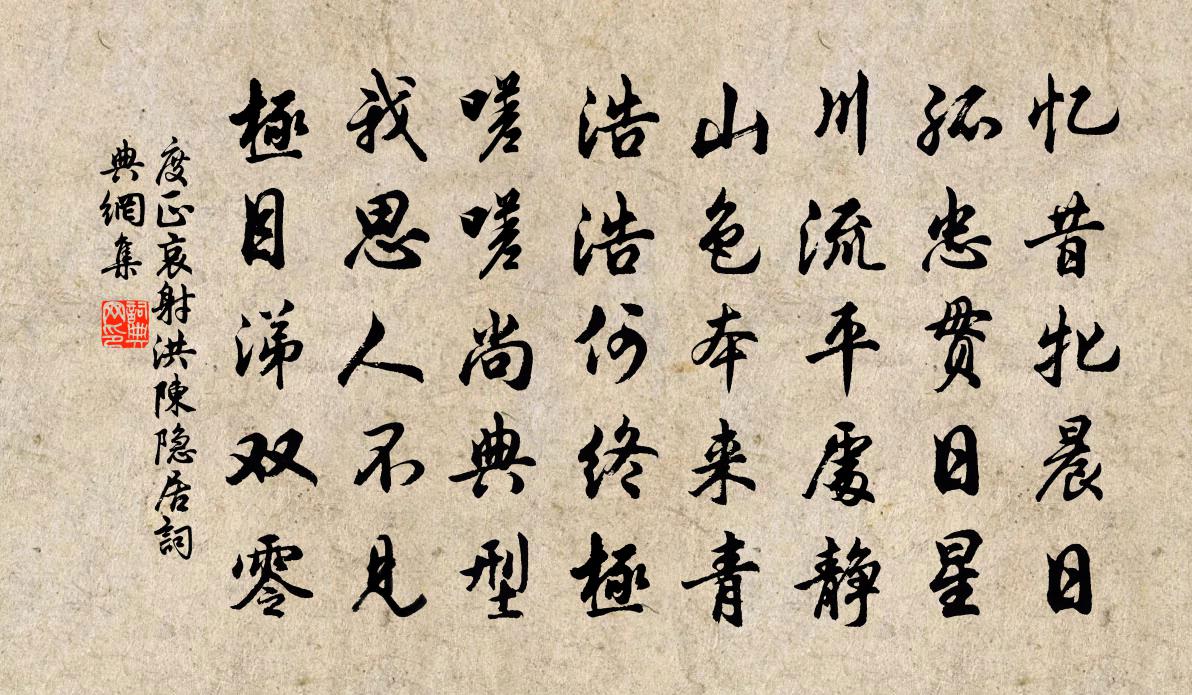 忆昔牝晨日
孤忠贯日星
川流平處静
山色本来青
浩浩何终極
嗟嗟尚典型
我思人不見
極目涕双零
度正哀射洪陳隐居詞
典網集
詞典
网印